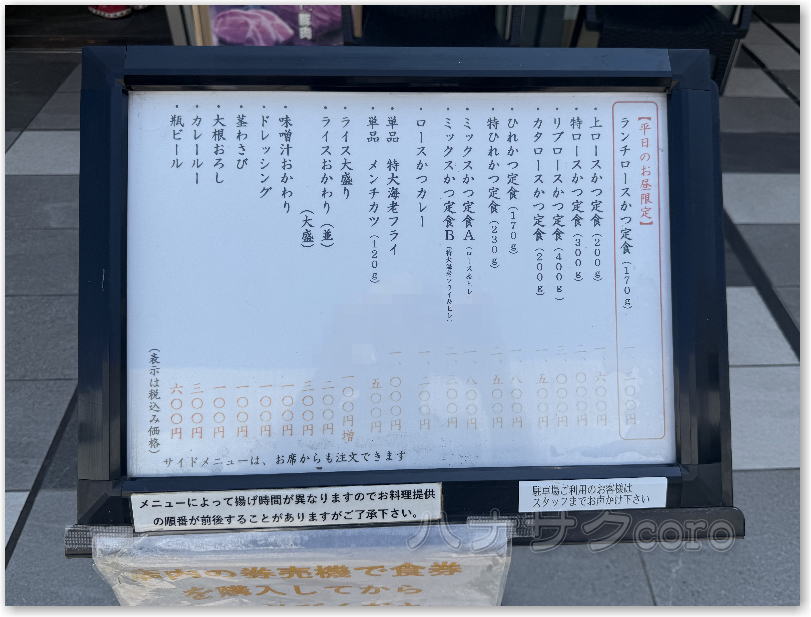 豚肉
【平日のお昼限定】
ランチロースかつ定食（170g） 一、三〇〇円
・上ロースかつ定食（200g） 一、六〇〇円
・特ロースかつ定食（300g） 二、一〇〇円
・リブロースかつ定食（400g） 三、〇〇〇円
・カタロースかつ定食（200g） 一、五〇〇円
・ひれかつ定食（170g） 一、八〇〇円
・特ひれかつ定食（230g） 二、五〇〇円
・ミックスかつ定食A（ロース&ヒレ） 一、八〇〇円
・ミックスかつ定食B（特大海老フライ&ヒレ） 二、三〇〇円
・ロースかつカレー 一、二〇〇円
・単品 特大海老フライ 一、〇〇〇円
・単品 メンチカツ（120g） 五〇〇円
・ライス大盛り 一〇〇円増
・ライスおかわり（並） 二〇〇円
（大盛） 三〇〇円
・味噌汁おかわり 一〇〇円
・ドレッシング 一〇〇円
・茎わさび 一〇〇円
・大根おろし 一〇〇円
・カレールー 三〇〇円
・瓶ビール 六〇〇円
（表示は税込み価格）
サイドメニューは、お席からも注文できます
メニューによって揚げ時間が異なりますのでお料理提供
の順番が前後することがありますがご了承下さい。
駐車場ご利用のお客様は
スタッフまでお声かけ下さい
ハナサクcoro
内の券売機で食券
を購入してから